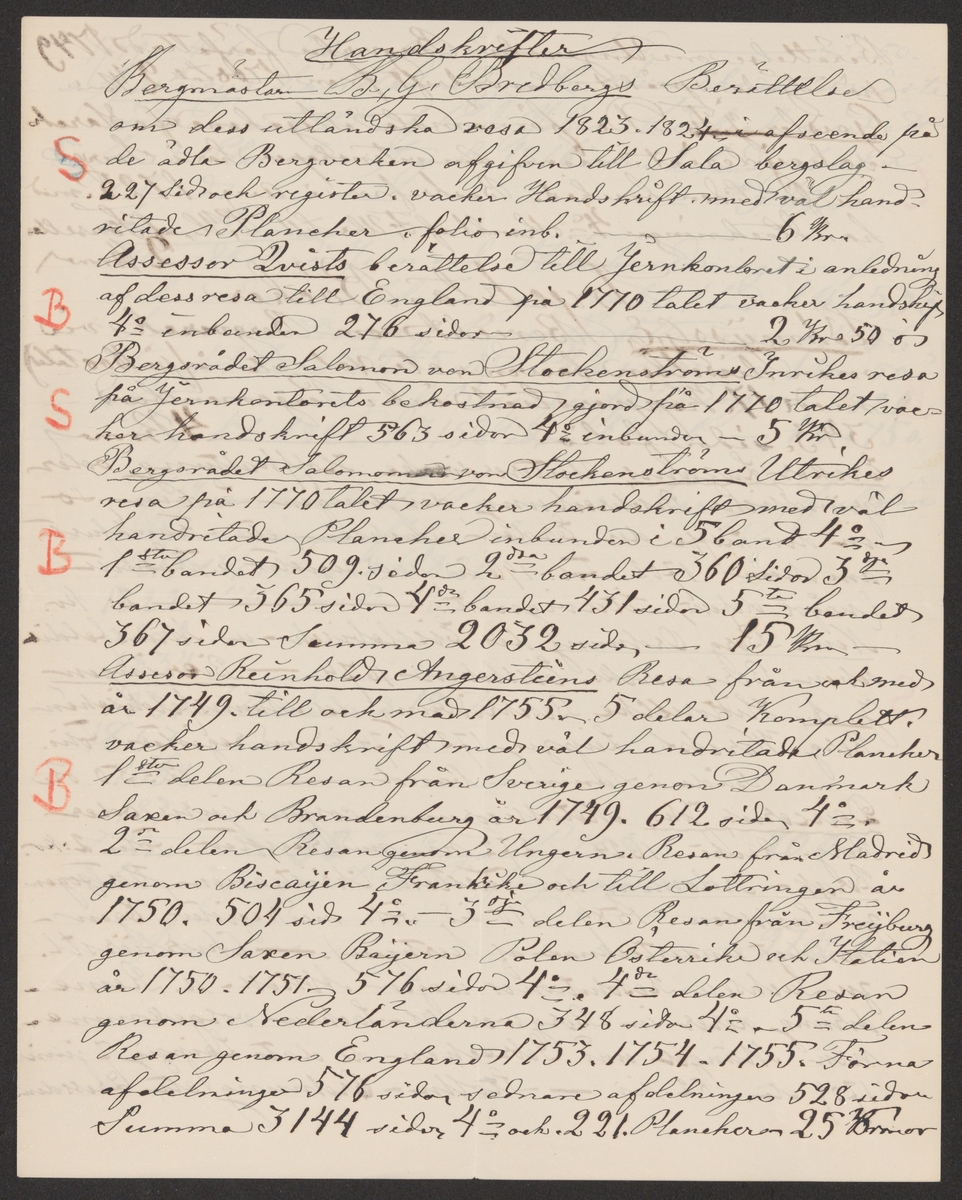 Handskrifter
Bergmästar B, G, Bredbergs Berättelse
om dess utländska resa 1823. 1824 i afseende på
S de ädla Bergverken afgifven till Sala bergslag –
227 Sid och register. vacker Handskrift. med väl hand-
ritade Plancher, folio inb. 6 Kr.
Assessor Qvists berättelse till Jernkontoret i anledning
B af dess resa till England på 1770 talet vacker handskrif
4o inbunden 276 sidor 2 Kr 50 ö
Bergsrådet Salomon von Stockenströms Inrikes resa
S på Jernkontorets bekostnad gjord på 1770 talet vac-
ker handskrift 563 sidor 4o inbunden – 5 Kr
Bergsrådet Salomon von Stockenströms Utrikes
resa på 1770 talet vacker handskrift med väl
handritade Plancher inbunden i 5 band 4o –
B 1sta bandet 509 sidor 2dra bandet 360 sidor 3dje
bandet 365 sidor 4de bandet 431 sidor 5te bandet
367 sidor Summa 2032 sidor – 15 Kr –
Assesor Reinhold Angersteins Resa från och med
år 1749. till och med 1755. 5 delar Komplett.
vacker handskrift med väl handritade Plancher
B 1sta delen Resan från Sverige genon Danmark
Saxen och Brandenburg år 1749. 612 sidor 4o.
2ra delen Resan genom Ungern. Resan från Madrid
genom Biscaijen Frankrike och till Lottringen år
1750. 504 sid 4o. – 3dje delen Resan från Freÿburg
genom Saxen Baÿern Polen Österrike och Italien
år 1750. 1751 – 576 sidor 4o. 4de delen Resan
genom Nederländerna 348 sidor 4o. 5te delen
Resan genom England 1753. 1754 – 1755. Förna
afdelninger 576 sidor, sednare afdelningen 528 sidor
Summa 3144 sidor 4o och 221. Plancher 25 Kronor